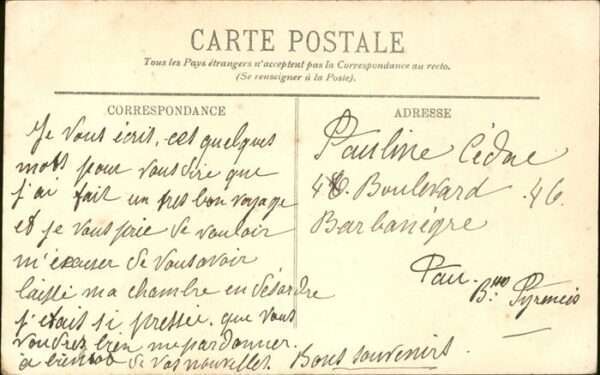 CARTE POSTALE
Tous les Pays étrangers n'acceptent pas la Correspondance au recto.
(Se renseigner à la Poste).
CORRESPONDANCE
Je vous écris, ces quelques
mots pour vous dire que
j'ai fait un très bon voyage
et je vous prie de vouloir
m'excuser de vous avoir
laissé ma chambre en désordre
j'étais si pressée, que vous
voudrez bien me pardonner.
a bientot de vos nouvelles. Bons souvenirs.
ADRESSE
Pauline
46. Boulevard 46
Barbanègre
Pau.
Bses Pyrenées